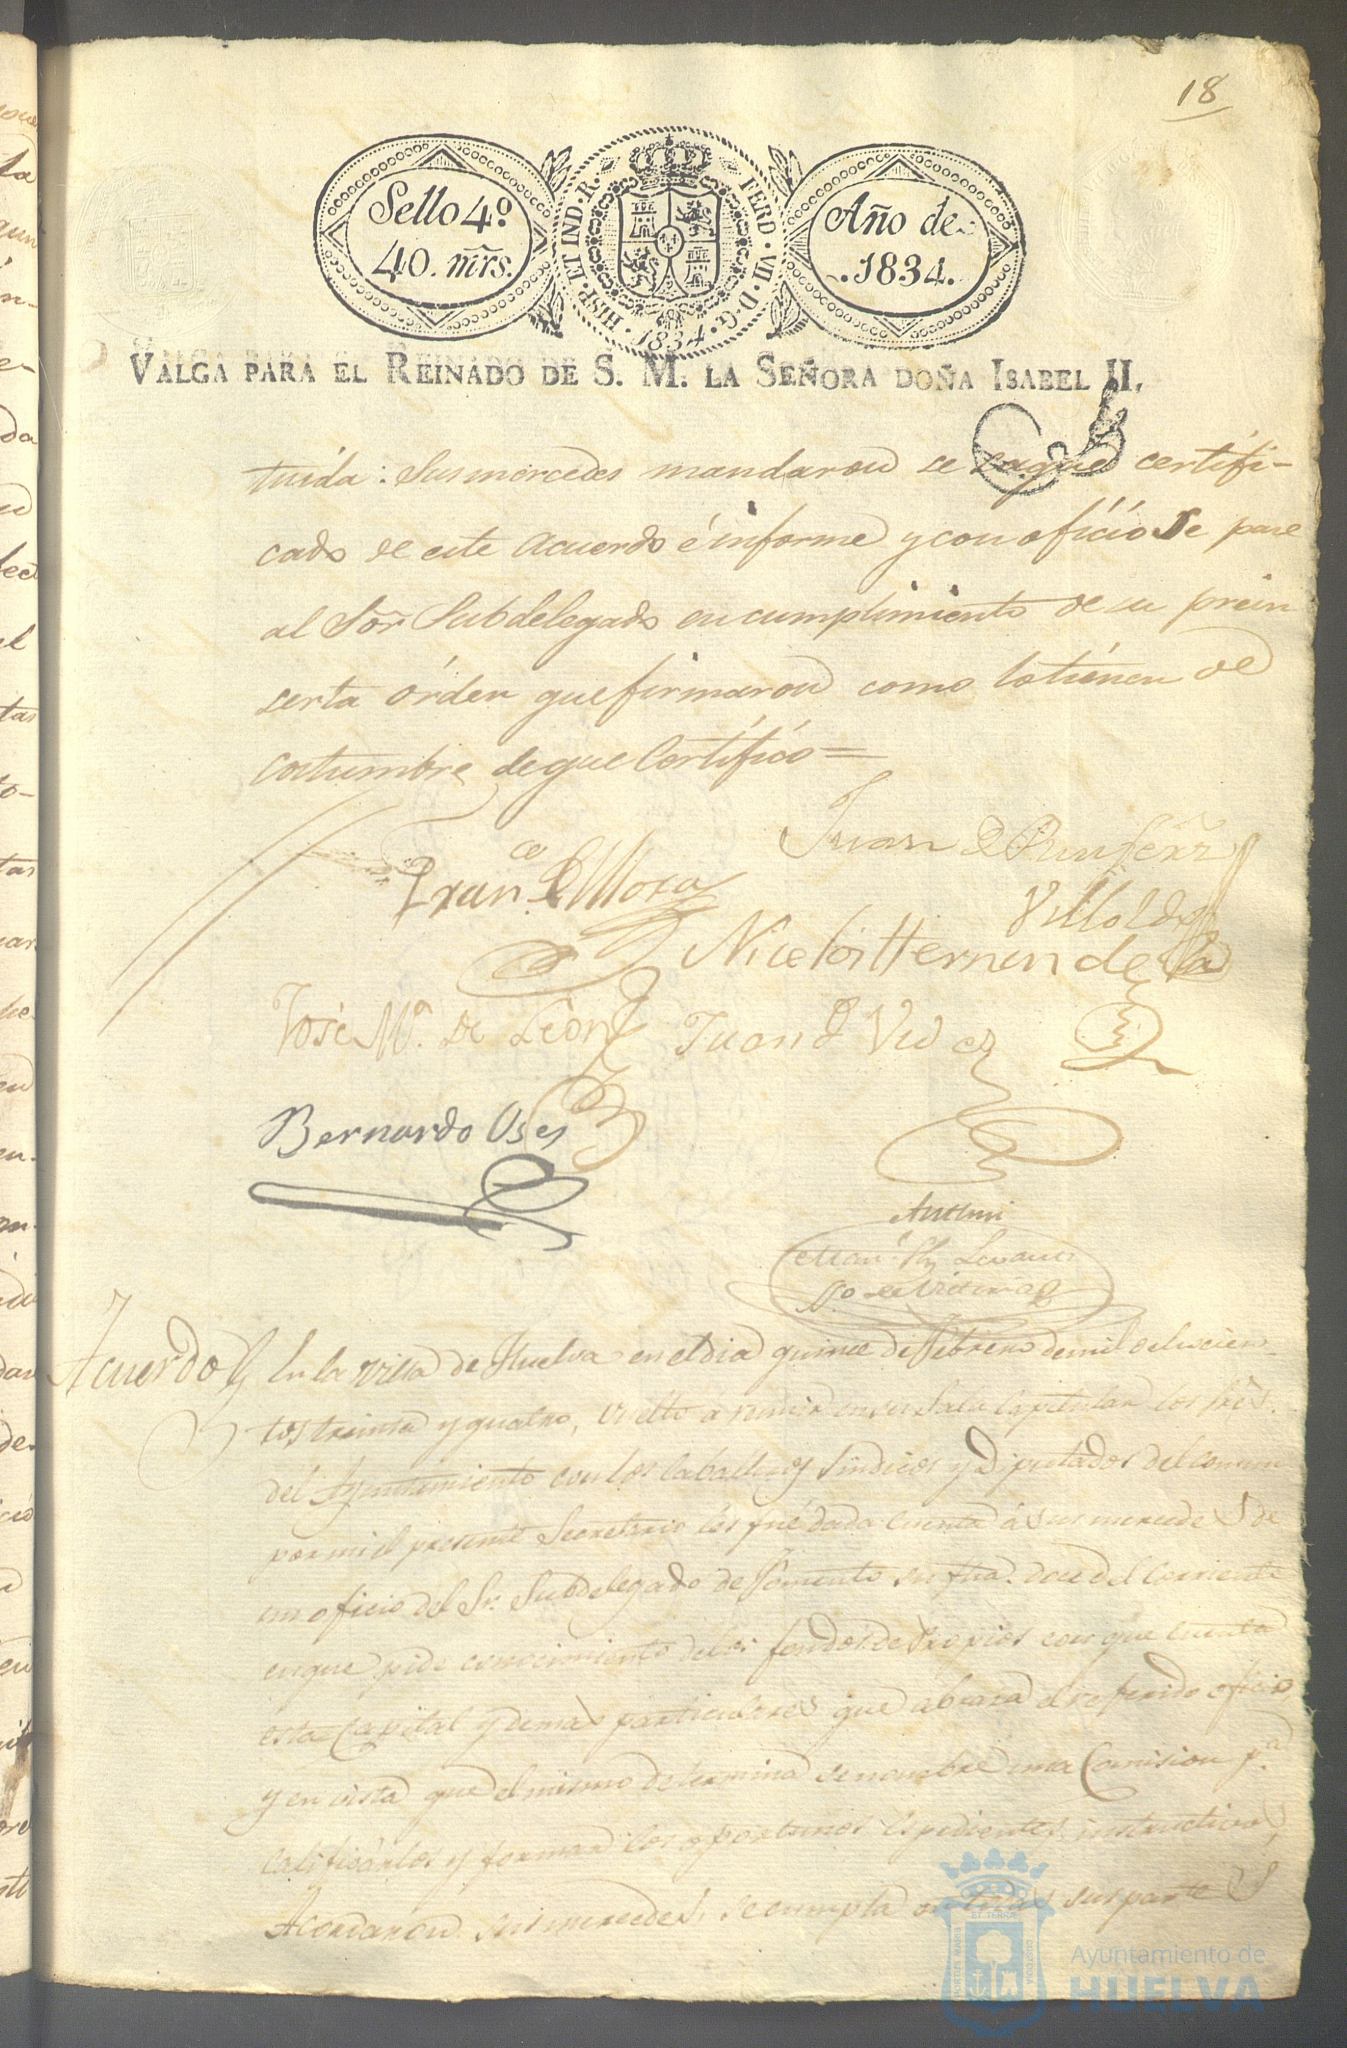 18
Sello 4º
40. mrs.
HISP. ET IND. R.
FERD. VII. D. G.
1834
Año de
1834.
VALGA PARA EL REINADO DE S. M. LA SEÑORA DOÑA ISABEL II.
tuida: Sus mercedes mandaron se saque certifi-
cado de este acuerdo é informe y con oficio se pase
al Sor Subdelegado en cumplimiento de su prein
serta órden que firmaron como lo tienen de
costumbre de que Certifico =
Franco. de Mora
Juan
Villalde
Nicolas Hernandez
José Mª. de Leon
Juan de Vides
Bernardo Uses
Antemi
Acuerdo
En la villa de Huelva en el dia quince de Febrero de mil ochocien-
tos treinta y quatro, vuelto a reunir en su Sala Capitular los Sres.
del Ayuntamiento con los Caballeros Síndicos y Diputados del comun
por mi el presente Secretario les fué dada cuenta á sus mercedes de
un oficio del Sr. Subdelegado de Fomento su fha. doce del Corriente
en que pide conocimiento de los fondos de Propios con que cuenta
esta Capital y demas particulares que abraza el referido oficio
y en vista que el mismo determina se nombre una Comision pª.
calificarlos y formar los oportunos espedientes instructivos
Acordaron sus mercedes, se cumpla en todas sus partes
Ayuntamiento de
HUELVA